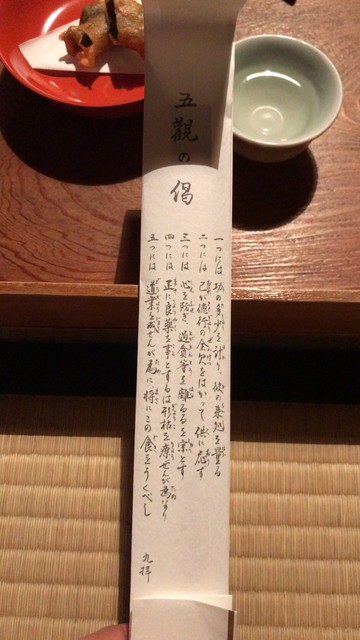 五觀の偈
一つには 功の多少を計り、彼の来処を量る
二つには 己が徳行の全欠をはかって供に応ず
三つには 心を防ぎ、過貪等を離るるを宗とす
四つには 正に良薬を事とするは形枯を療ぜんが為なり
五つには 道業を成ぜんが為に 将にこの食をうくべし
九拝